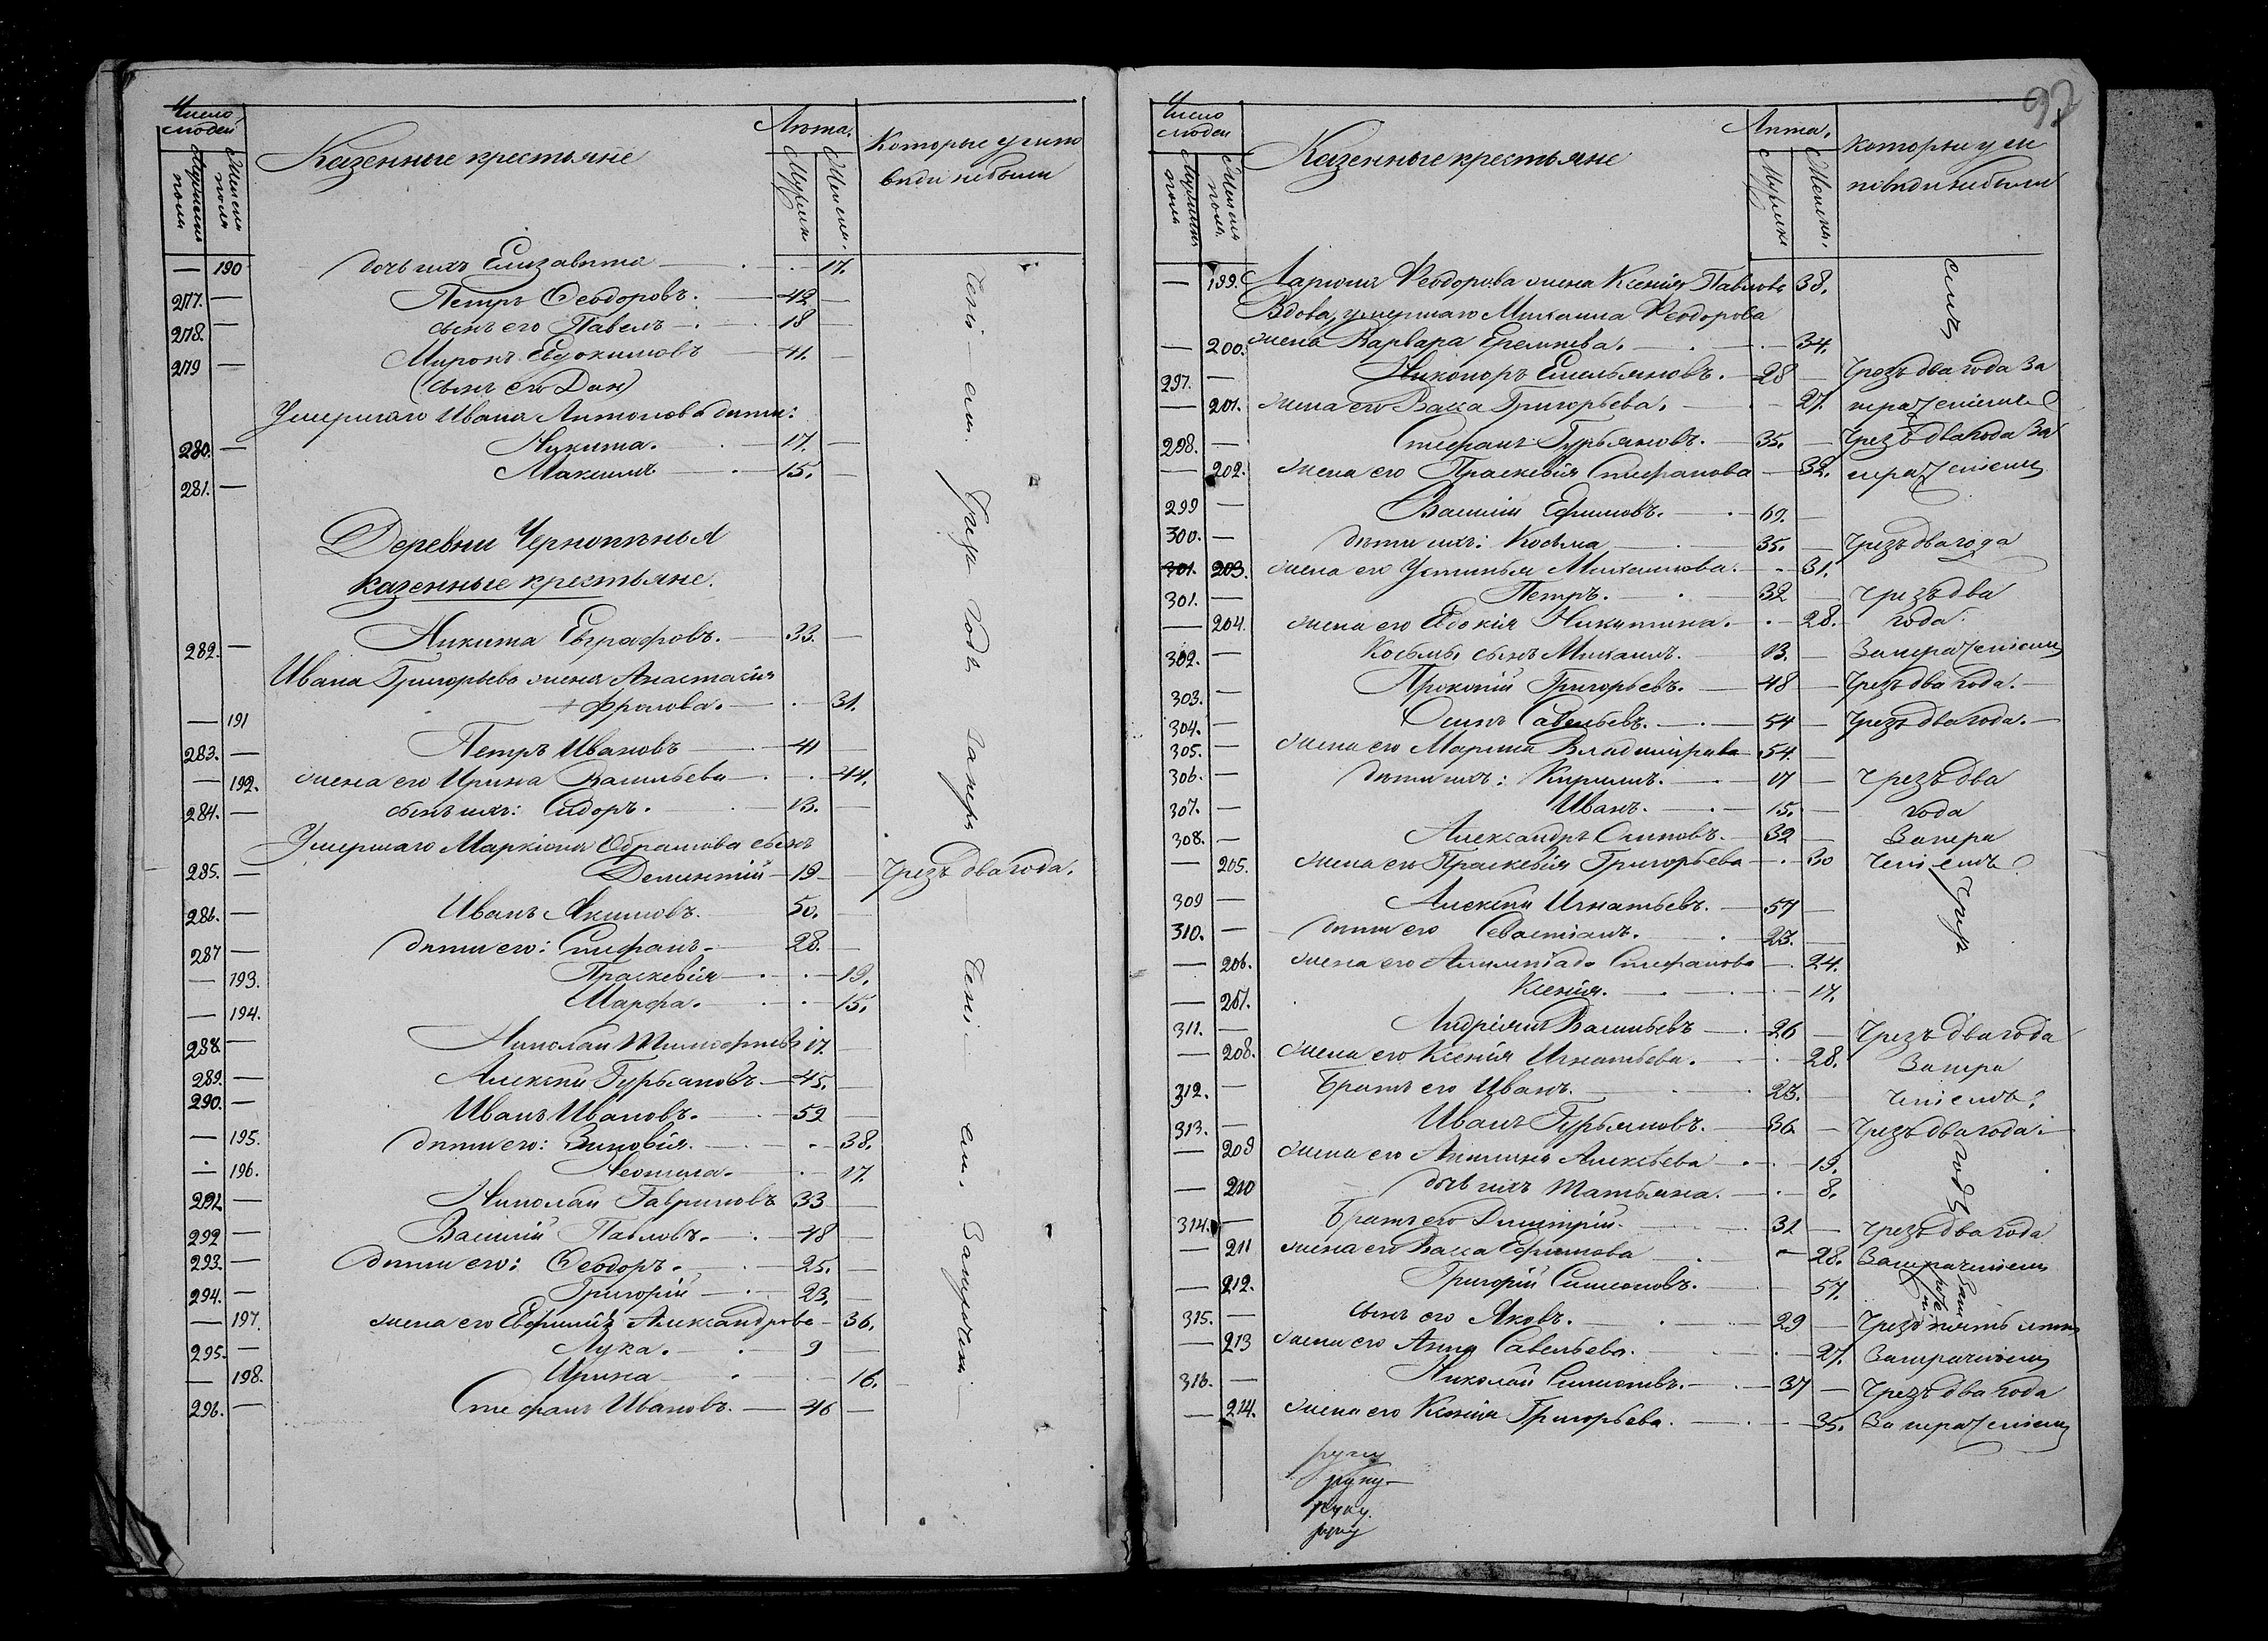 Число людей
Мужеска пола
Женска пола
Казенные крестьяне
Лѣта.
Мужеск
Женск.
Которые у испо
вѣди небыли
— 190 дочь ихъ Елизавета — 17.
277. — Петръ Ѳеодоровъ. — 42 —
278. — сынъ его Павелъ — 18 —
279 — Миронъ Евдокимовъ — 41. —
(сынъ его Дан)
Умершаго Ивана Антонова дѣти:
280. — Никита. 17. —
281. — Максимъ 15. —
Деревни Чернопенья
казенные крестьяне.
282. — Никита Евграфовъ. — 33. —
Ивана Григорьева жена Анастасія
— 191 Фролова. — 31.
283. — Петръ Ивановъ — 41 —
— 192. жена его Ирина Васильева — 44.
284. — сынъ ихъ: Сидоръ. 13. —
Умершаго Маркіона Обрамова сынъ
285. — Дементій — 19 — Чрезъ два года.
286. — Иванъ Акимовъ. 50. —
287 — дѣти его: Стефанъ. — 28. —
— 193. Праскевія — 19.
— 194. Марфа. — 15.
288. — Николай Тимофеевъ 17. —
289. — Алексѣй Гурьяновъ — 45. —
290. — Иванъ Ивановъ. — 52 —
— 195. дѣти его: Зиновія. — 38.
— 196. Неонила. — 17.
291. — Николай Гавриловъ 33 —
292 — Василій Павловъ. — 48 —
293. — Дѣти его: Ѳеодоръ. — 25. —
294. — Григорій — 23.
— 197. жена его Евфимія Александрова — 36.
295. — Лука. — 9 —
— 198. Ирина — 16.
296. — Стефанъ Ивановъ. — 46 —
Число людей
Мужеска пола
Женска пола.
Казенные крестьяне
Лѣта.
Мужеск
Женск.
которые у ис
повѣди небыли
— 199. Ларіона Ѳеодорова жена Ксенія Павлова 38.
Вдова, умершаго Михаила Ѳеодорова
— 200. жена Варвара Еремѣева. — 34.
297. — Никоноръ Емельяновъ. — 28 — Чрезъ два года За
— 201. жена его Васса Григорьева. — 27. нераченіемъ
298. — Стефанъ Гурьяновъ. — 35. — Чрезъ два года За
— 202. жена его Праскевія Стефанова — 32. нераченіемъ
299 — Василій Ефимовъ. — 69. —
300. — дѣти ихъ: Косьма — 35. — Чрезъ два года
301. 203. жена его Устинья Михайлова. — 31.
301. — Петръ. — 32 — чрезъ два
— 204. жена его Евдокія Никитина. — 28. — года.
302. — Косьмы сынъ Михаилъ. 13. — За нераченіемъ
303. — Прокопій Григорьевъ. — 48 — Чрезъ два года. —
304. — Осипъ Савельевъ. — 54 — Чрезъ два года. —
305. — жена его Марина Владимірова — 54. —
306. — Дѣти ихъ: Кириллъ. — 17 — чрезъ два
307. — Иванъ. — 15. — года
308. — Александръ Осиповъ. — 32 — За нера
— 205. жена его Праскевія Григорьева — 30 ченіемъ
309 — Алексѣй Игнатьевъ. — 57 —
310. — дѣти его Севастіанъ. 23. —
— 206. жена его Олимпіада Стефанова — 24.
— 207. Ксенія. — 17.
311. — Андріянъ Васильевъ — 26 — Чрезъ два года
— 208. жена его Ксенія Игнатьева. — 28. За нера
312. — братъ его Иванъ. 23. — ченіемъ.
313. — Иванъ Гурьяновъ. — 36. — Чрезъ два года. —
— 209 жена его Акилина Алексѣева — 19.
— 210 дочь ихъ Татьяна. — 8.
314. — братъ его Димитрій. 31 — чрезъ два года
— 211 жена его Васса Ефимова — 28. За нераченіемъ
— 212. Григорій Симеоновъ. — 57.
315. — сынъ его Яковъ. — 29 — Чрезъ пять лѣтъ
— 213 жена его Анна Савельева. — 27. За нераченіемъ
316. — Николай Симеоновъ. — 37 — Чрезъ два года
— 214. жена его Ксенія Григорьева. — 35. За нераченіемъ